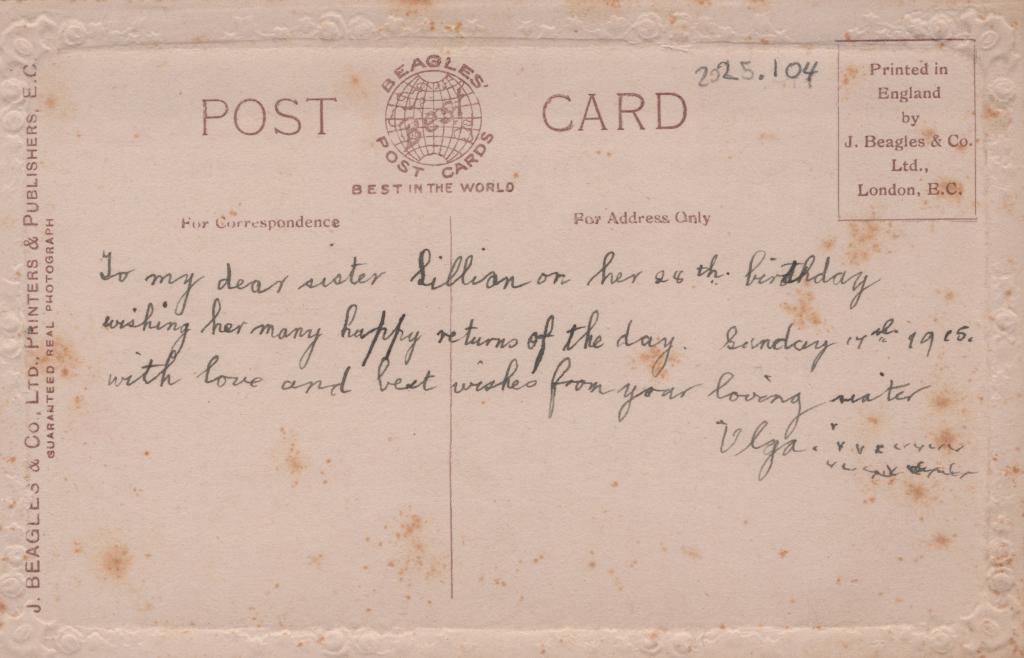 POST CARD
BEAGLES'
BEST
POST CARDS
BEST IN THE WORLD
2025.104
Printed in
England
by
J. Beagles & Co.
Ltd.,
London, E.C.
For Correspondence
For Address Only
To my dear sister Lillian on her 28th. birthday
wishing her many happy returns of the day. Sunday 17th. 1915.
with love and best wishes from your loving sister
Olga.
J. BEAGLES & CO., LTD., PRINTERS & PUBLISHERS, E.C.
GUARANTEED REAL PHOTOGRAPH